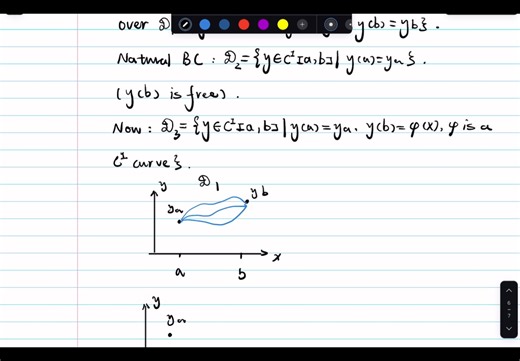 over D y(b)=yb}.
Natural BC: D₂={y∈C¹[a,b]| y(a)=ya}.
(y(b) is free).
Now: D₃={y∈C¹[a,b]| y(a)=ya. y(b)=φ(x), φ is a
C¹ curve}.
y D1
ya yb
a b x
y
ya
6
7